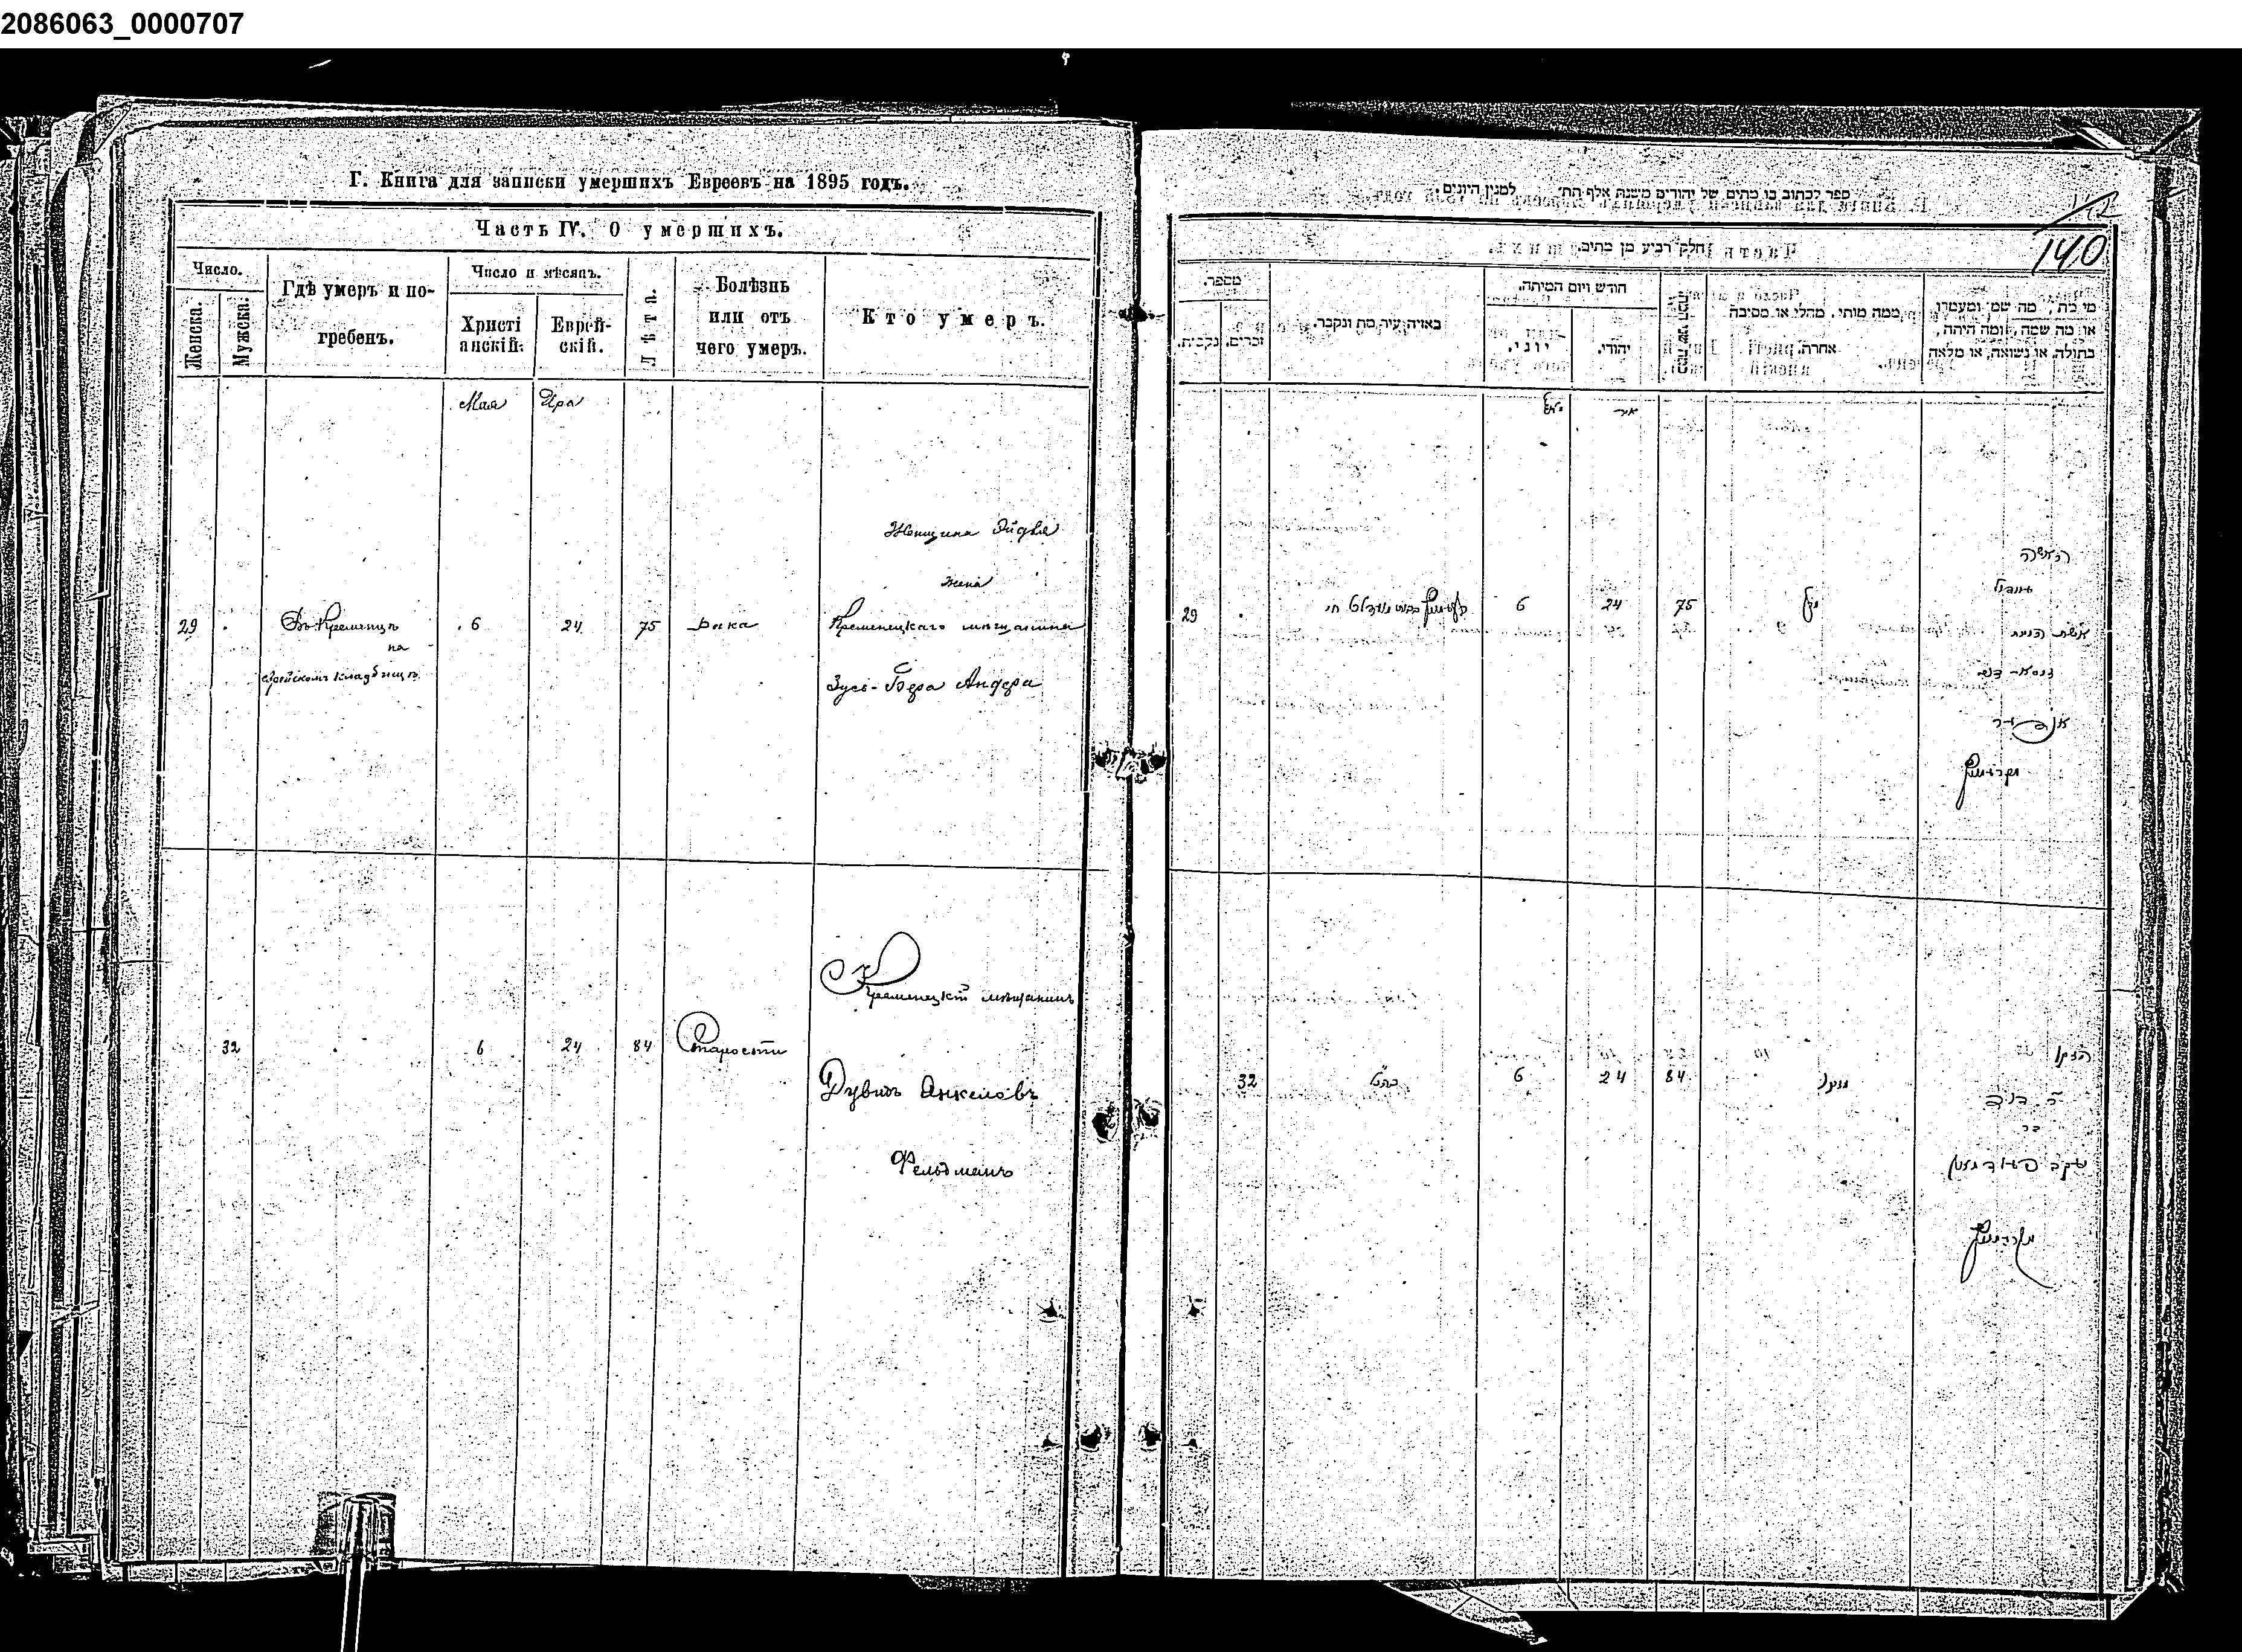 2086063_0000707
Г. Книга для записки умершихъ Евреевъ на 1895 годъ.
Часть IV. О умершихъ.
Число.
Женска.
Мужска.
Гдѣ умеръ и по-
гребенъ.
Число и мѣсяцъ.
Христі
анскій.
Еврей-
скій.
Лѣта.
Болѣзнь
или отъ
чего умеръ.
Кто умеръ.
Мая
Ира
Женщина
жена
29
Въ Кременцѣ
на
еврейскомъ кладбищѣ
6
24
75
Рака
Кременецкаго мѣщанина
Зуся-Бера Андера
32
6
24
84
Старости
Кременецкій мѣщанинъ
Дувидъ Янкелевъ
Фельдманъ
ספר לכתוב בו מתים של יהודים משנת אלף הת׳ למנין היונים.
חלק רביעי מן
140
מספר.
נקבות.
זכרים.
באיזה עיר מת ונקבר.
חודש ויום המיתה.
יוני.
יהודי.
ממה מותו, מחלי או מסיבה
אחרת.
מי מת, מה שמו ומעמדו,
או מה שמה, ומה היתה,
בתולה, או נשואה, או אלמנה
אייר
29
6
24
75
האשה
אשת
32
6
24
84
הזקן
ר׳ דוד
בר
יעקב פעלדמאן